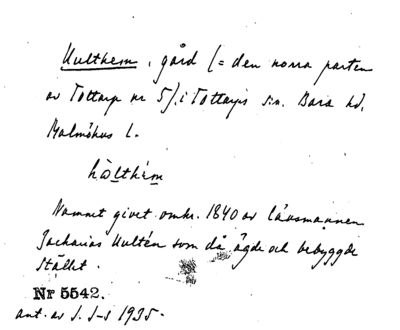 Hulthem, gård (= den norra parten
av Tottarp nr 5) i Tottarps sn. Bara hd,
Malmöhus l.
hòlthém
Namnet givet omkr. 1840 av länsmannen
Zacharias Hultén som då ägde och bebyggde
stället.
Nr 5542.
ant. av J. S-s 1935.